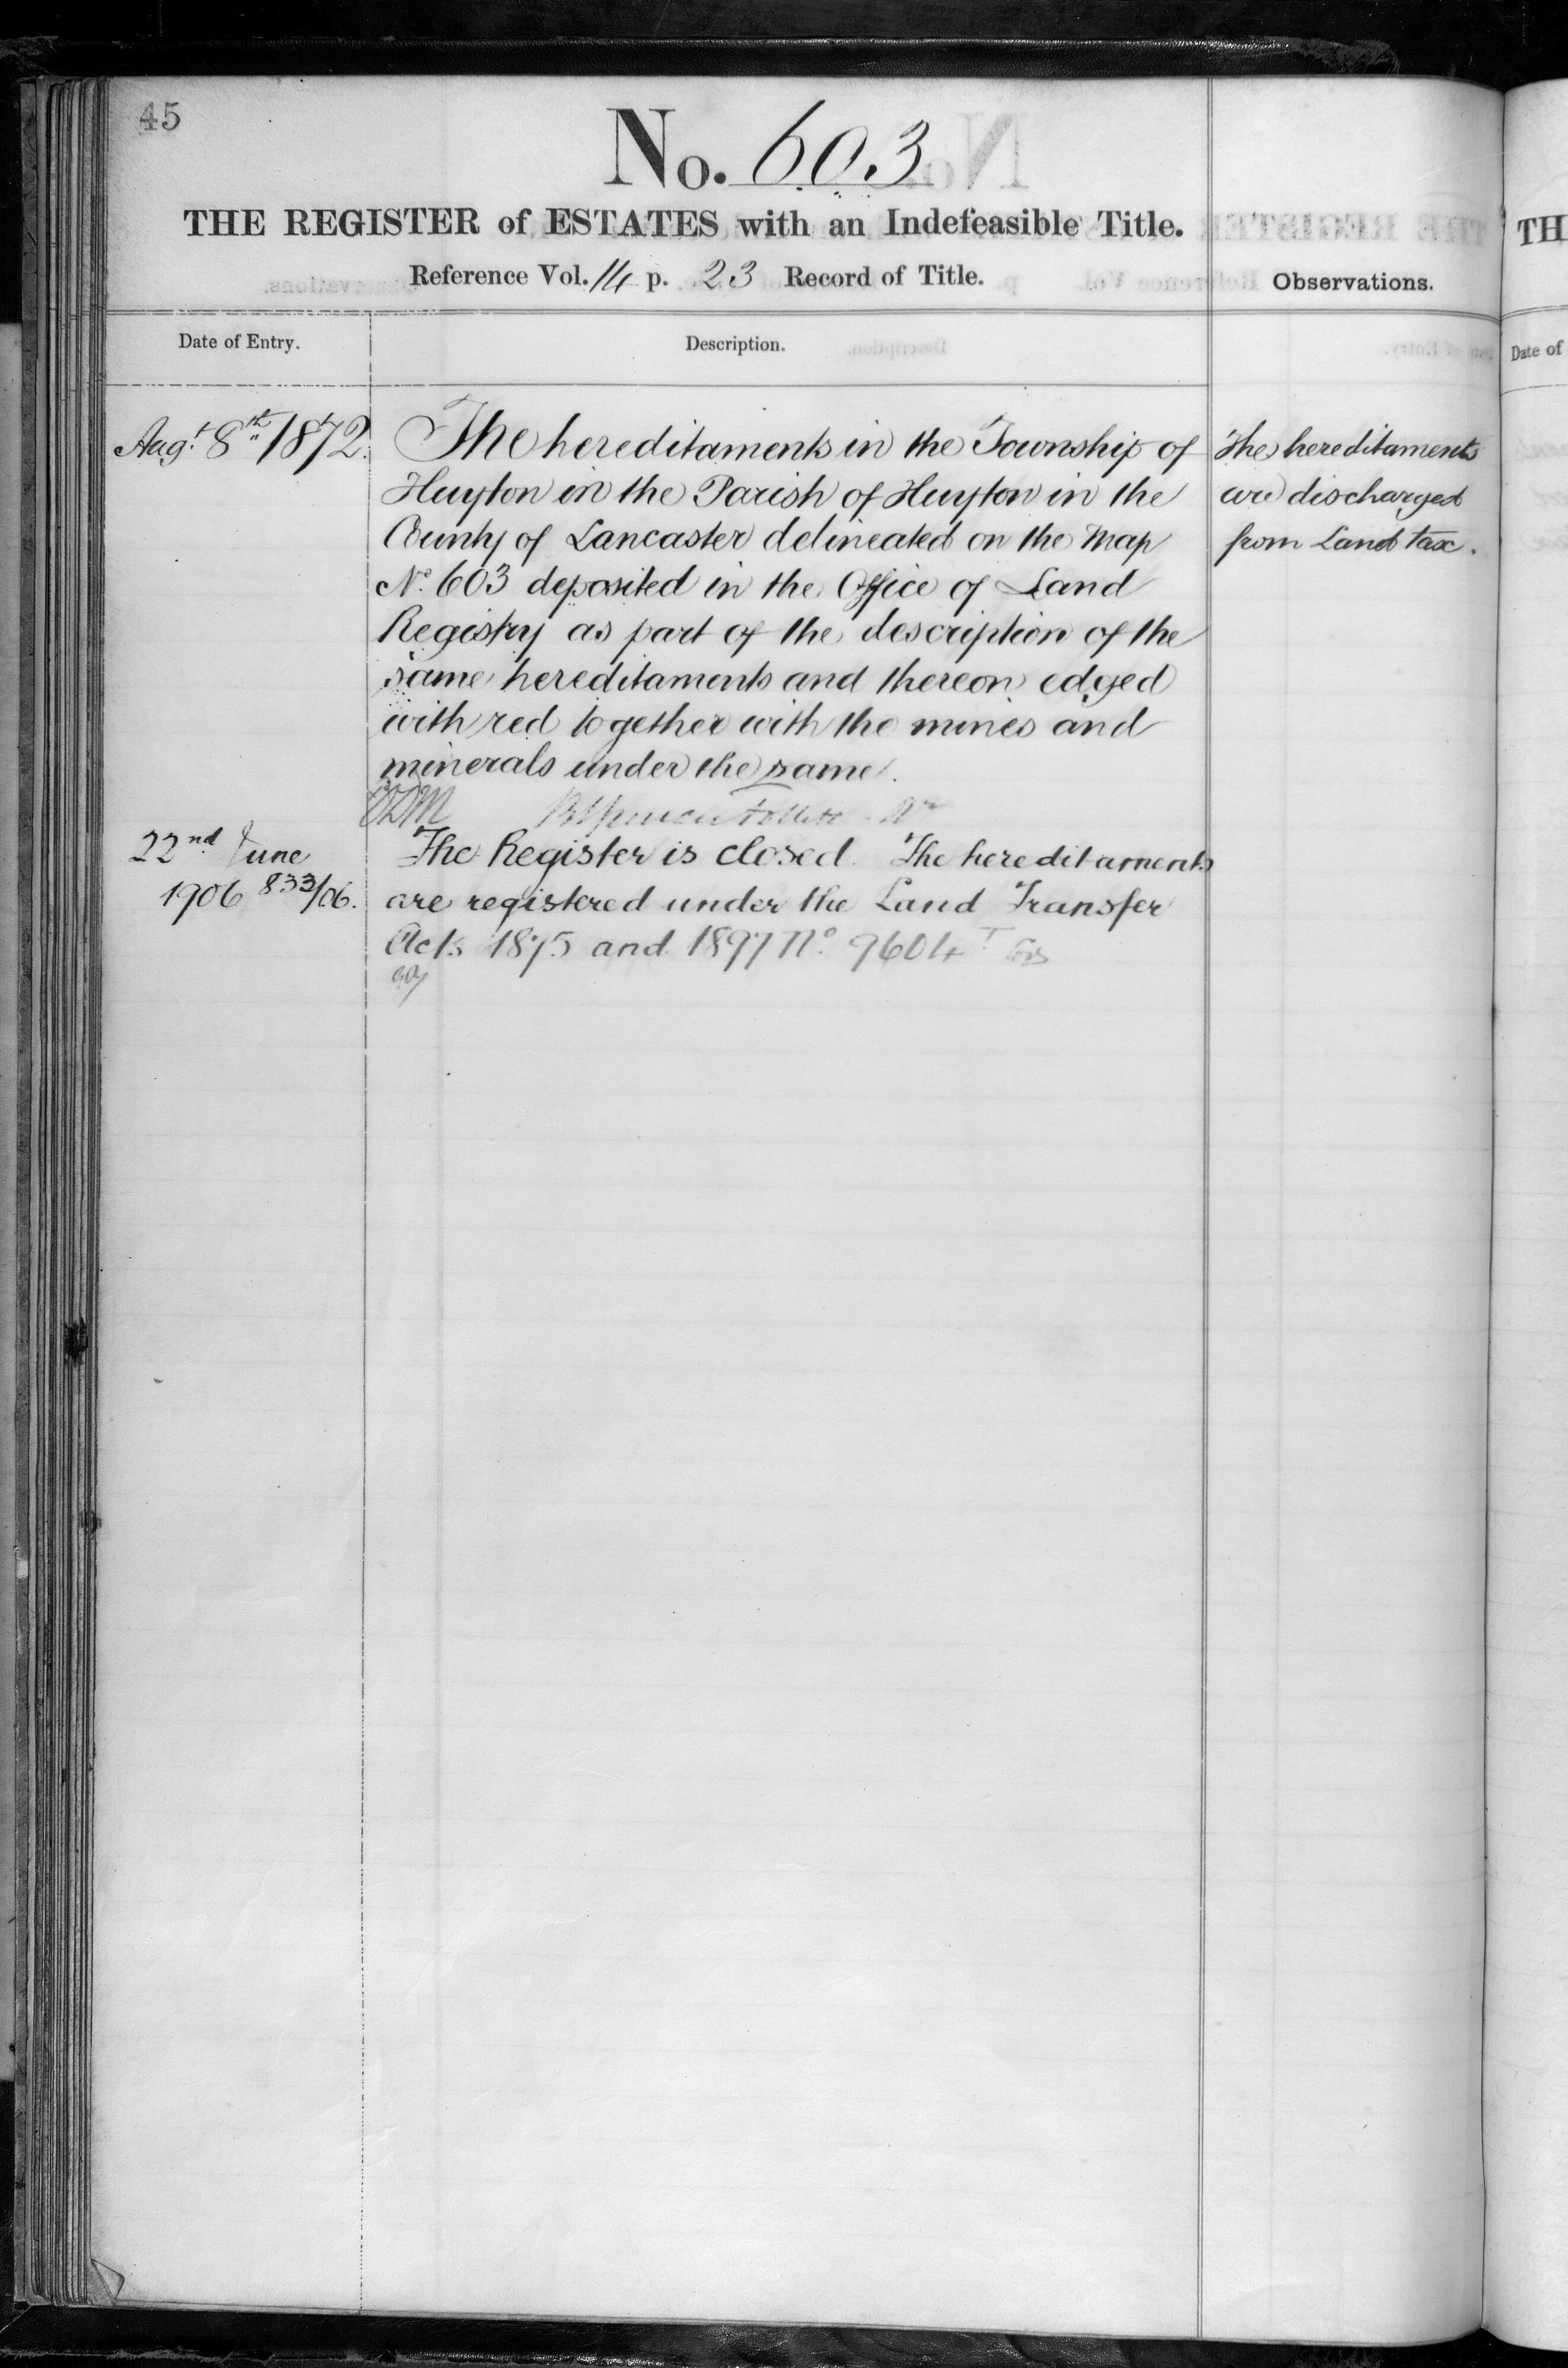 45
No. 603
THE REGISTER of ESTATES with an Indefeasible Title.
Reference Vol. 14 p. 23 Record of Title.
Observations.
Date of Entry.
Description.
Augt. 8th 1872.
The hereditaments in the Township of
Huyton in the Parish of Huyton in the
County of Lancaster delineated on the Map
No. 603 deposited in the Office of Land
Registry as part of the description of the
same hereditaments and thereon edged
with red together with the mines and
minerals under the same.
The hereditaments
are discharged
from Land tax.
Follett
22nd June
1906 833/06.
The Register is closed. The hereditaments
are registered under the Land Transfer
Acts 1875 and 1897 No. 9604
TH
Date of